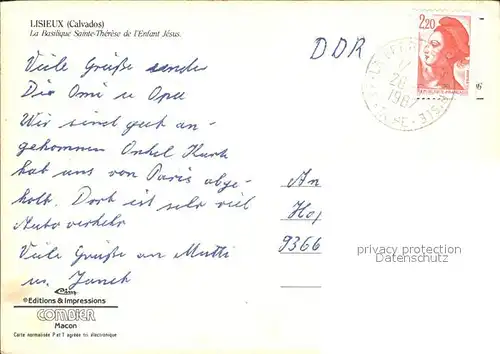 LISIEUX (Calvados)
La Basilique Sainte-Thérèse de l'Enfant Jésus.
DDR
2,20
Viele Grüße senden
Die Omi u Opa
Wir sind gut an-
gekommen Onkel Kurt
hat uns von Paris abge-
holt. Dort ist sehr viel
Autoverkehr
Viele Grüße an Mutti
u.
An
Ho
9366
privacy protection
Datenschutz
Cim
©Editions & Impressions
COMBIER
Macon
Carte normalisée P et T agréée tri électronique